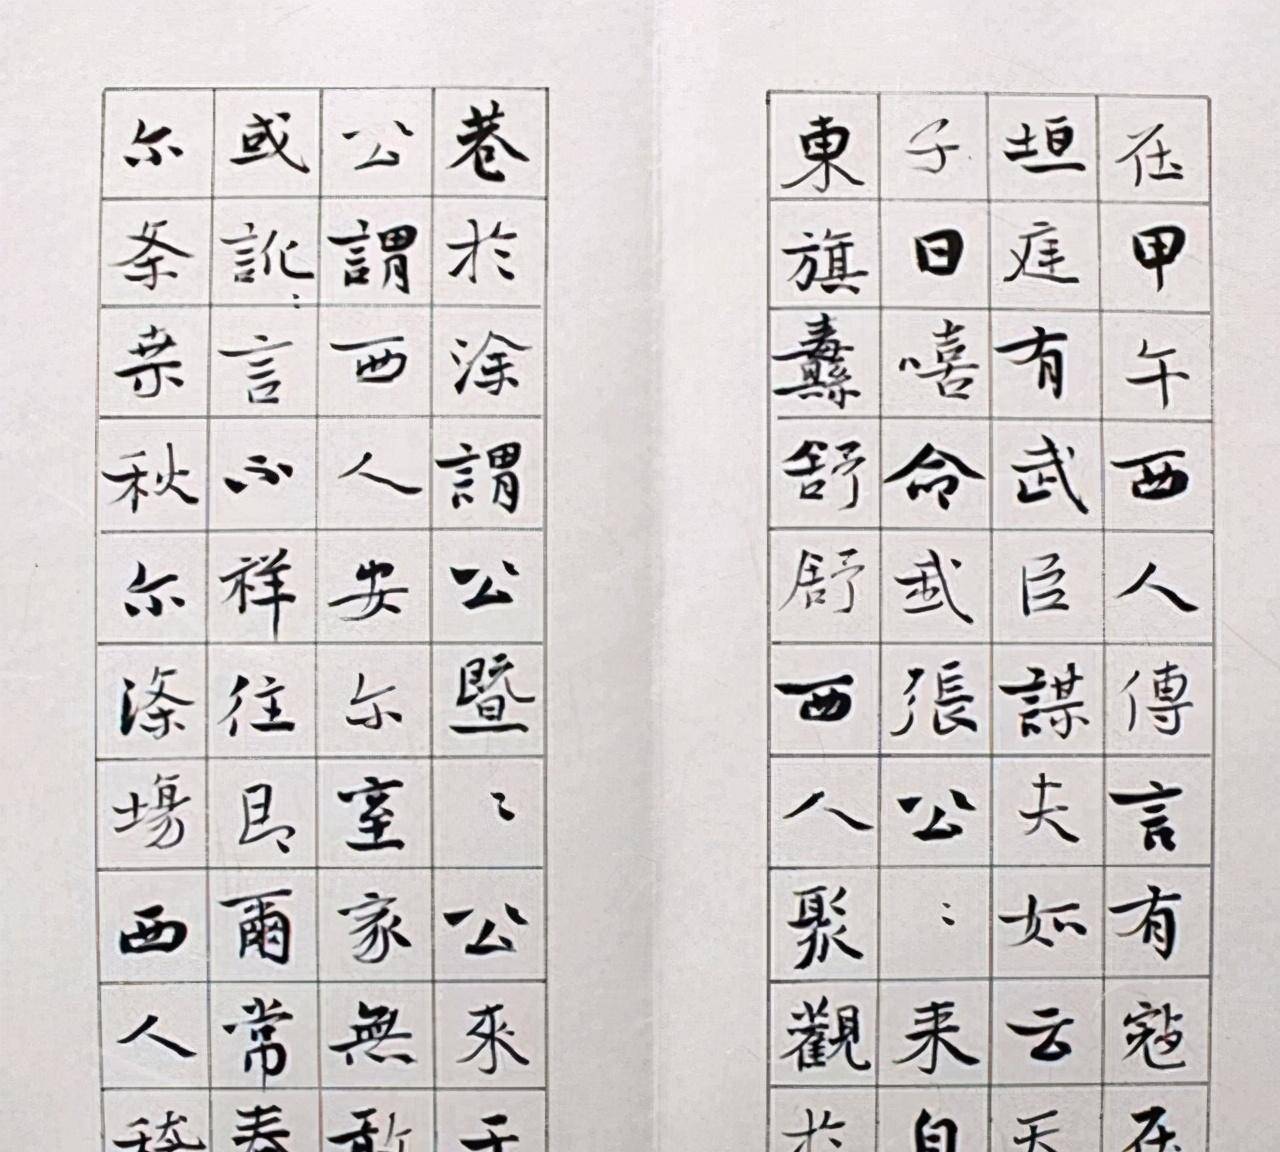 在甲午西人傳言有寇在
垣庭有武臣謀夫如云天
子曰嘻命我張公〻来自
東旗纛舒舒西人聚觀於
巷於涂謂公暨〻公來于
公謂西人安尔室家無敢
或訛〻言不祥往即爾常春
尔条桒秋尔滌場西人稽